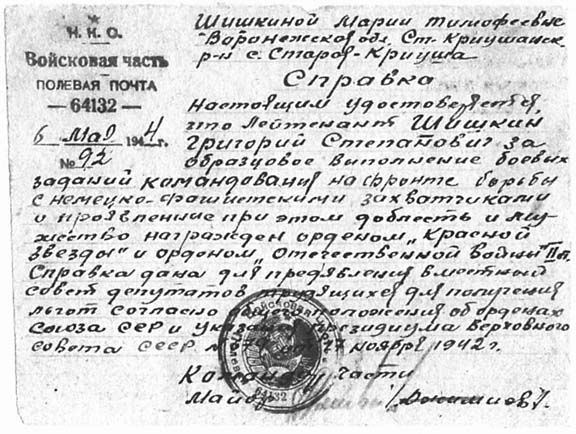 Н. К. О.
Войсковая часть
ПОЛЕВАЯ ПОЧТА
—64132—
6 мая 1944г.
№ 92
Шишкиной Марии Тимофеевне
Воронежская обл. Ст. Криушанск.
р-н с. Старо-Криуша
Справка
Настоящим удостоверяется
что Лейтенант Шишкин
Григорий Степанович за
образцовое выполнение боевых
заданий командования на фронте борьбы
с немецко-фашистскими захватчиками
и проявленные при этом доблесть и му-
жество награжден орденом „Красной
Звезды" и орденом „Отечественной Войны" II ст.
Справка дана для предявления в местный
совет депутатов трудящихся для получения
льгот согласно общего положения об орденах
Союза ССР и Указа Президиума Верховного
Совета СССР ноября 1942г.
Командир части
Майор
64132